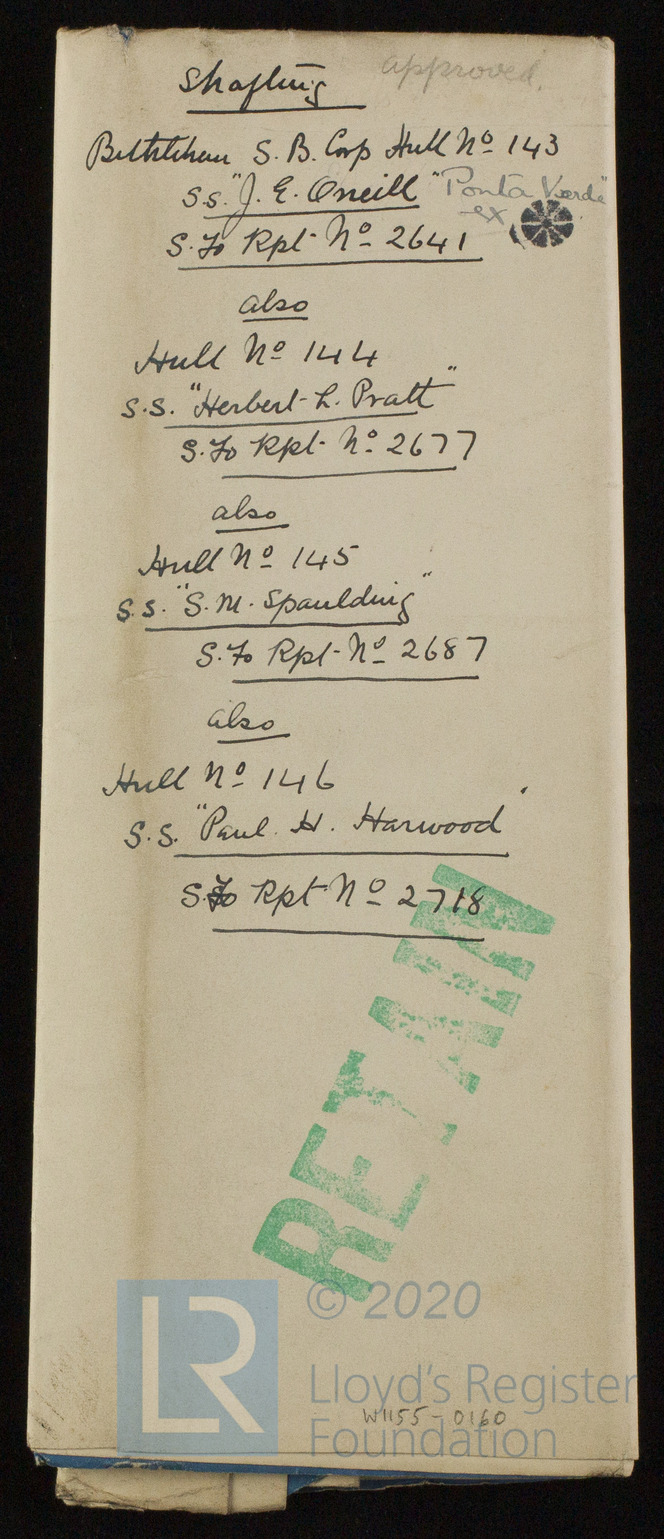 Shafting approved.
Bethlehem S. B. Corp Hull No 143
S.S. "J. E. Oneill" "Ponta Verde"
ex
S. Fo Rpt No 2641
also
Hull No 144
S.S. "Herbert L. Pratt"
S. Fo Rpt No 2677
also
Hull No 145
S.S. "S. M. Spaulding"
S. Fo Rpt No 2687
also
Hull No 146
S.S. "Paul H. Harwood"
S. Fo Rpt No 2718
RETAIN
LR
© 2020
Lloyd's Register
W1155-0160
Foundation